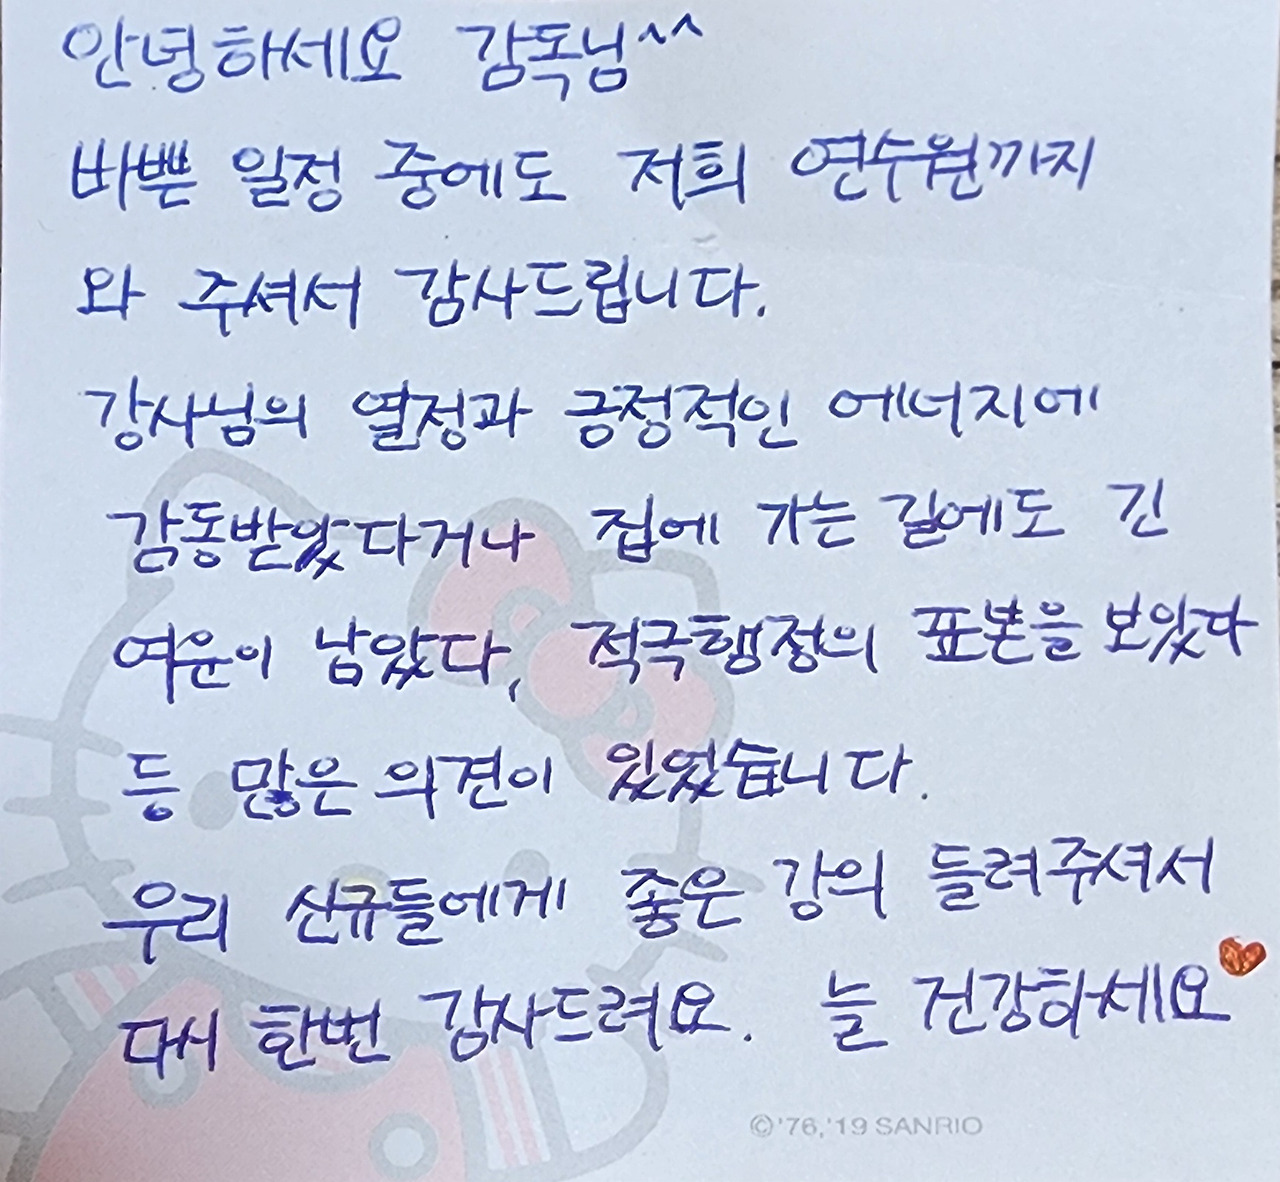 안녕하세요 감독님^^
바쁜 일정 중에도 저희 연수원까지
와 주셔서 감사드립니다.
강사님의 열정과 긍정적인 에너지에
감동받았다거나 집에 가는 길에도 긴
여운이 남았다, 적극행정의 표본을 보았다
등 많은 의견이 있었습니다.
우리 신규들에게 좋은 강의 들려주셔서
다시 한번 감사드려요. 늘 건강하세요♥
©'76,'19 SANRIO